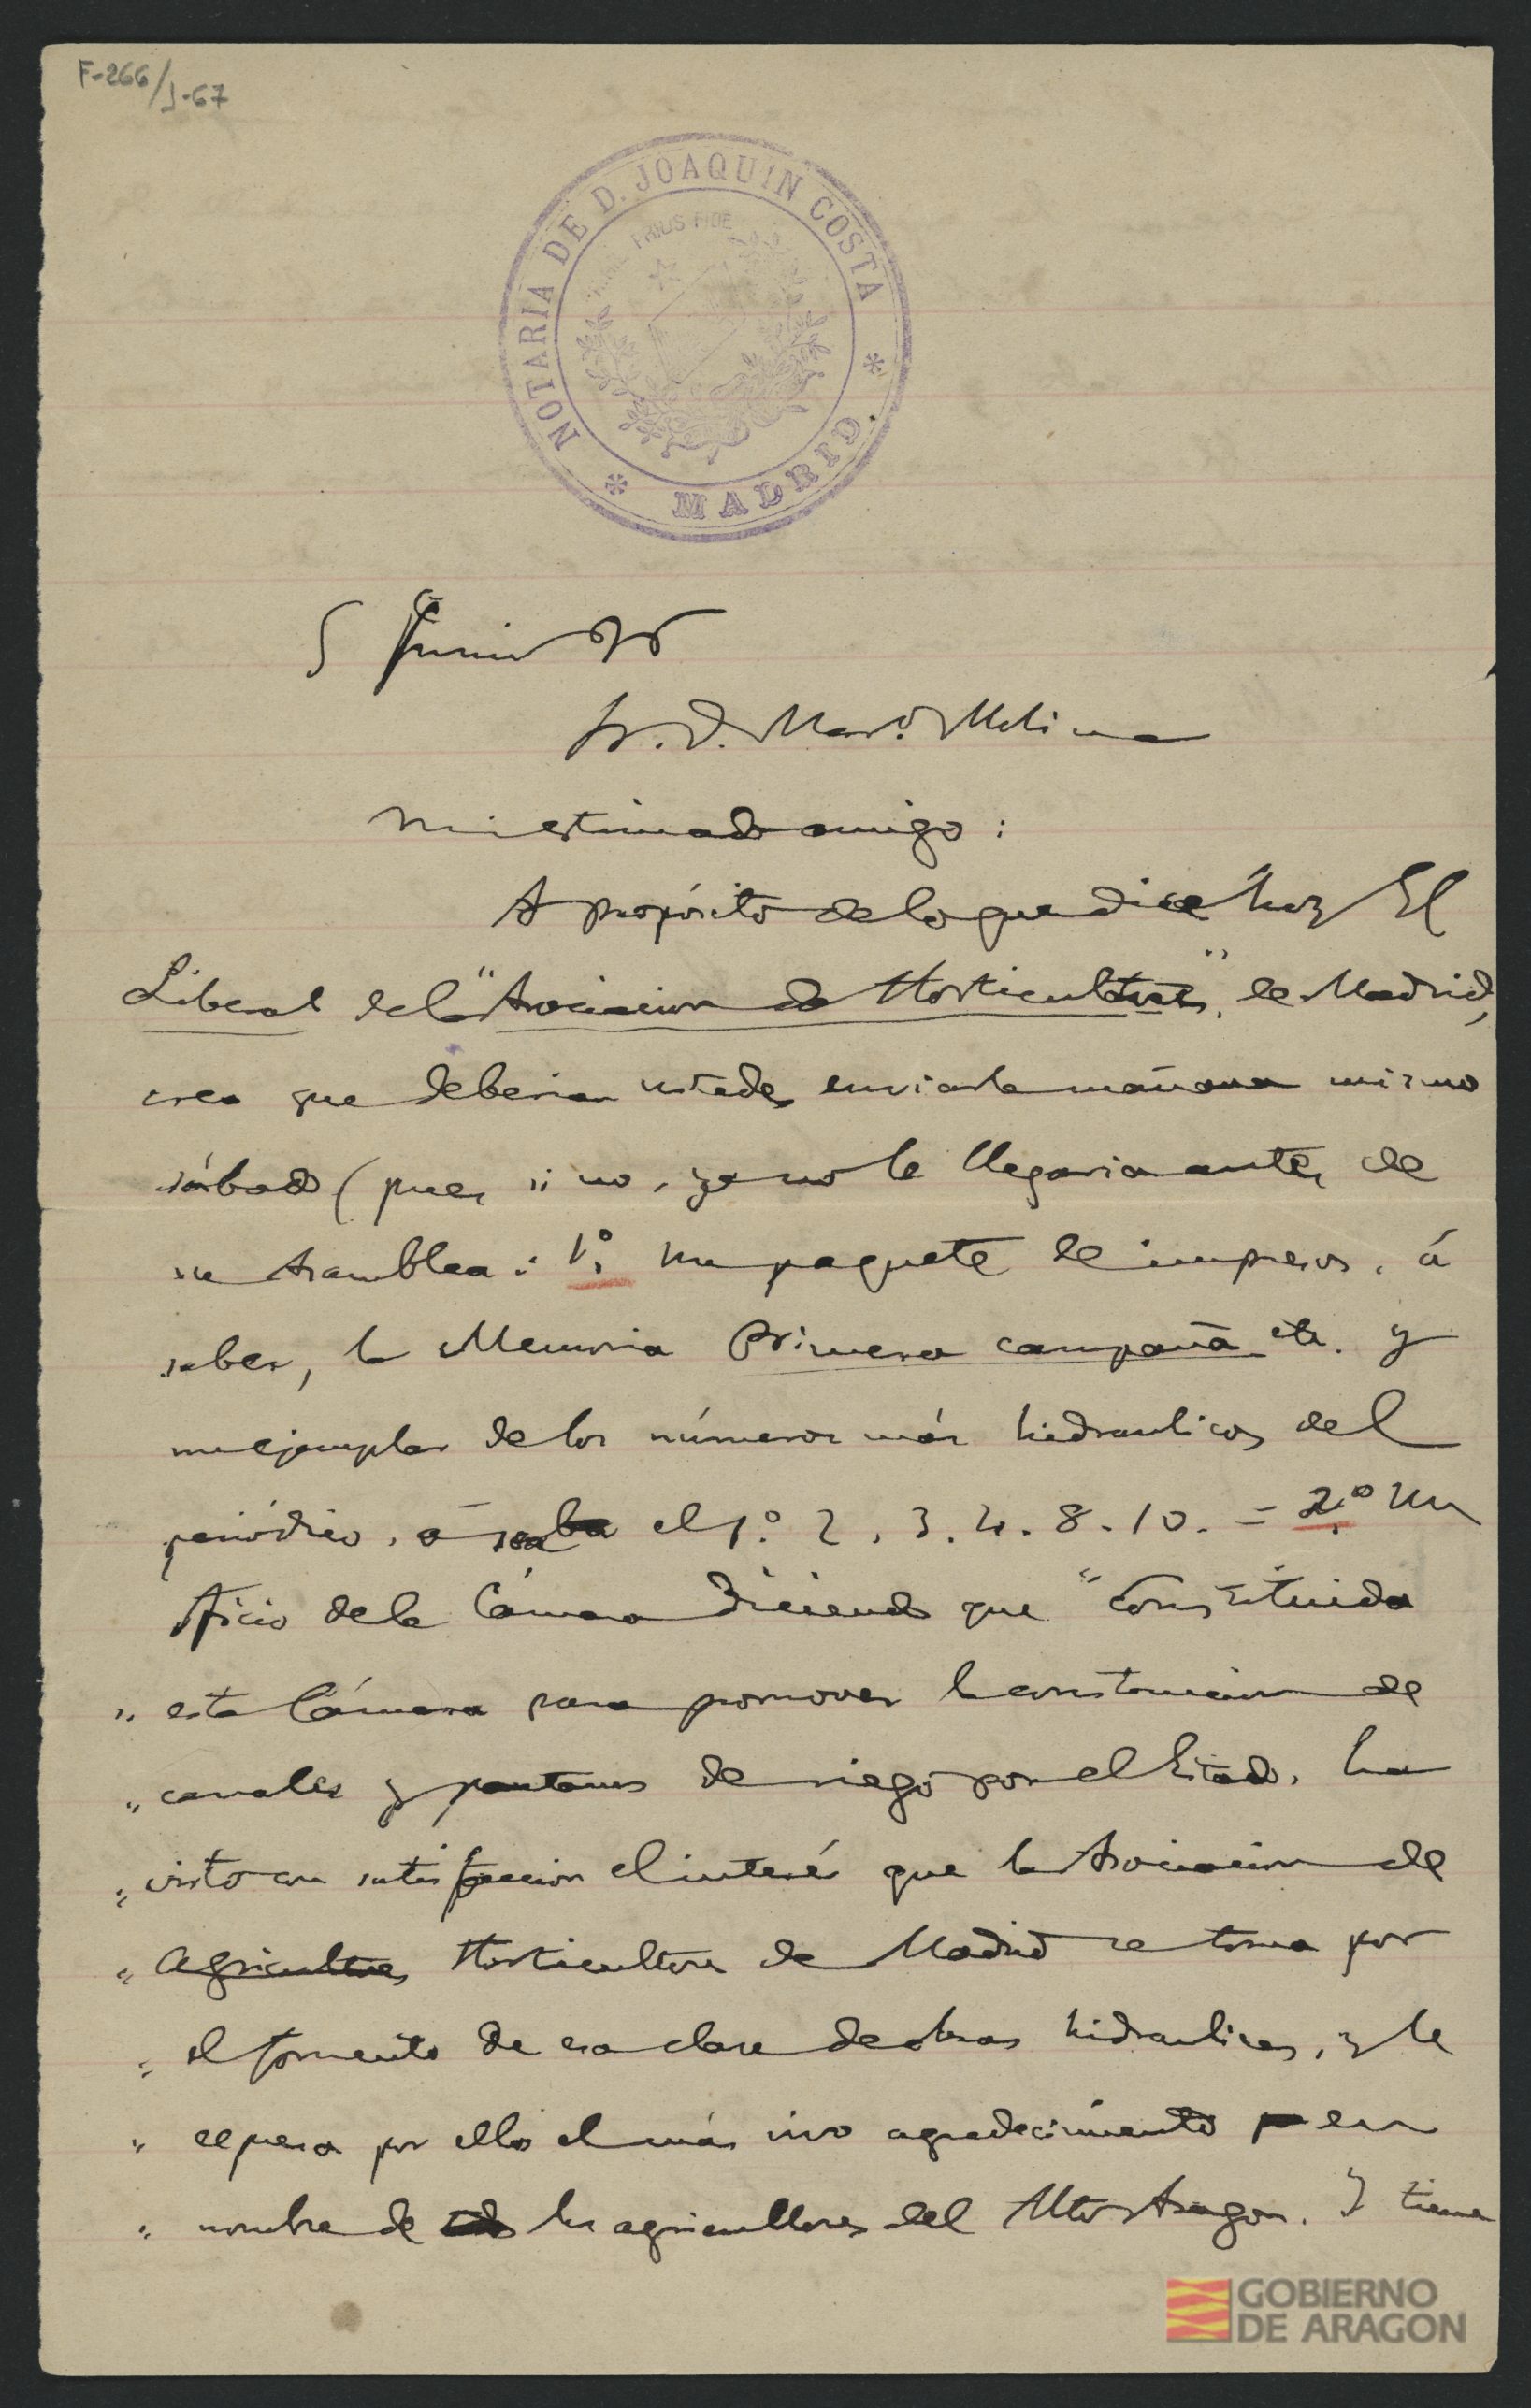 F-266/J-67
NOTARIA DE D. JOAQUIN COSTA
PRIUS FIDE
* MADRID. *
5 Junio 96
Sr. D. Mar.º Molina
Mi estimado amigo:
A propósito de lo que dice hoy El
Liberal de la "Asociacion de Horticultores", de Madrid,
creo que deberian ustedes enviarle mañana mismo
sábado (pues si no, ya no le llegaria antes de
su Asamblea: 1º Un paquete de impresos, á
saber, la Memoria Primera campaña etc. y
un ejemplar de los números más hidraulicos del
periódico, á saber el 1.º 2, 3. 4. 8. 10. = 2.º Un
oficio de la Cámara diciendo que "Constituida
" esta Cámara para promover la construccion de
" canales y pantanos de riego por el Estado, ha
" visto con satisfaccion el interés que la Asociacion de
" Agricultores Horticultores de Madrid se toma por
" el fomento de esa clase de obras hidraulicas, y le
" expresa por ello el más vivo agradecimiento en
" nombre de los agricultores del Alto Aragon. Y tiene
GOBIERNO
DE ARAGON